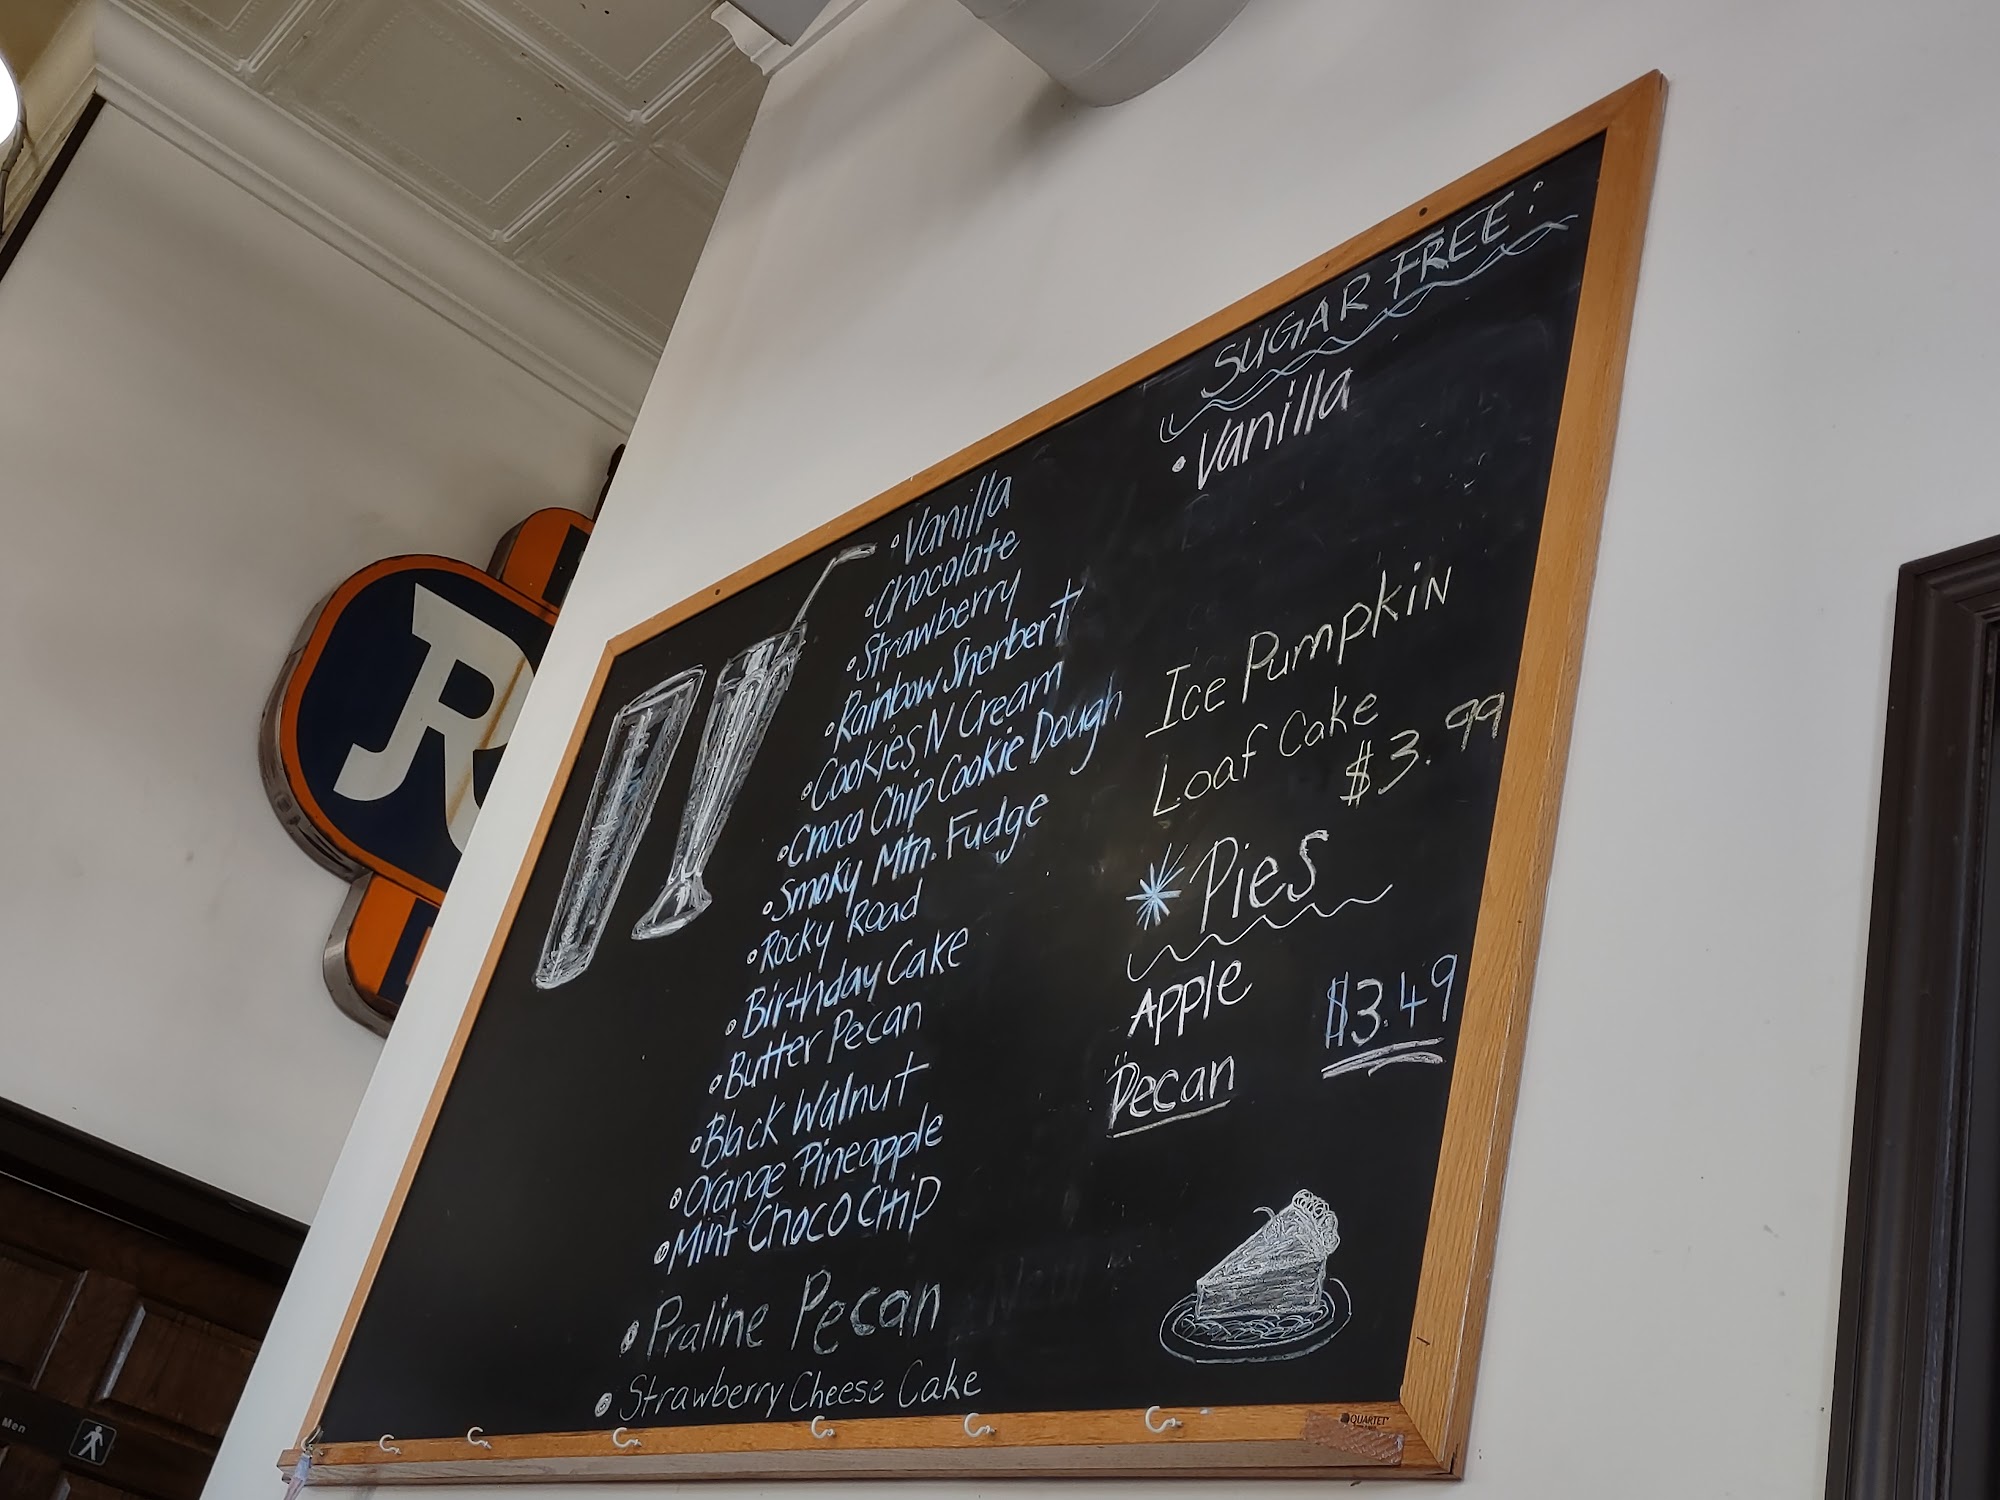 • Vanilla
• Chocolate
• Strawberry
• Rainbow Sherbert
• Cookies N Cream
• Choco Chip Cookie Dough
• Smoky Mtn. Fudge
• Rocky Road
• Birthday Cake
• Butter Pecan
• Black Walnut
• Orange Pineapple
• Mint Choco CHiP
• Praline Pecan
• Strawberry Cheese Cake
SUGAR FREE:
• Vanilla
Ice Pumpkin
Loaf Cake
$3.99
Pies
Apple
$3.49
Pecan
QUARTET
R
Men